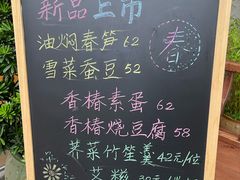 新品上市
春
油焖春笋 62
雪菜蚕豆 52
香椿素蛋 62
香椿烧豆腐 58
荠菜竹笙羹 42元/位
艾糍 30元